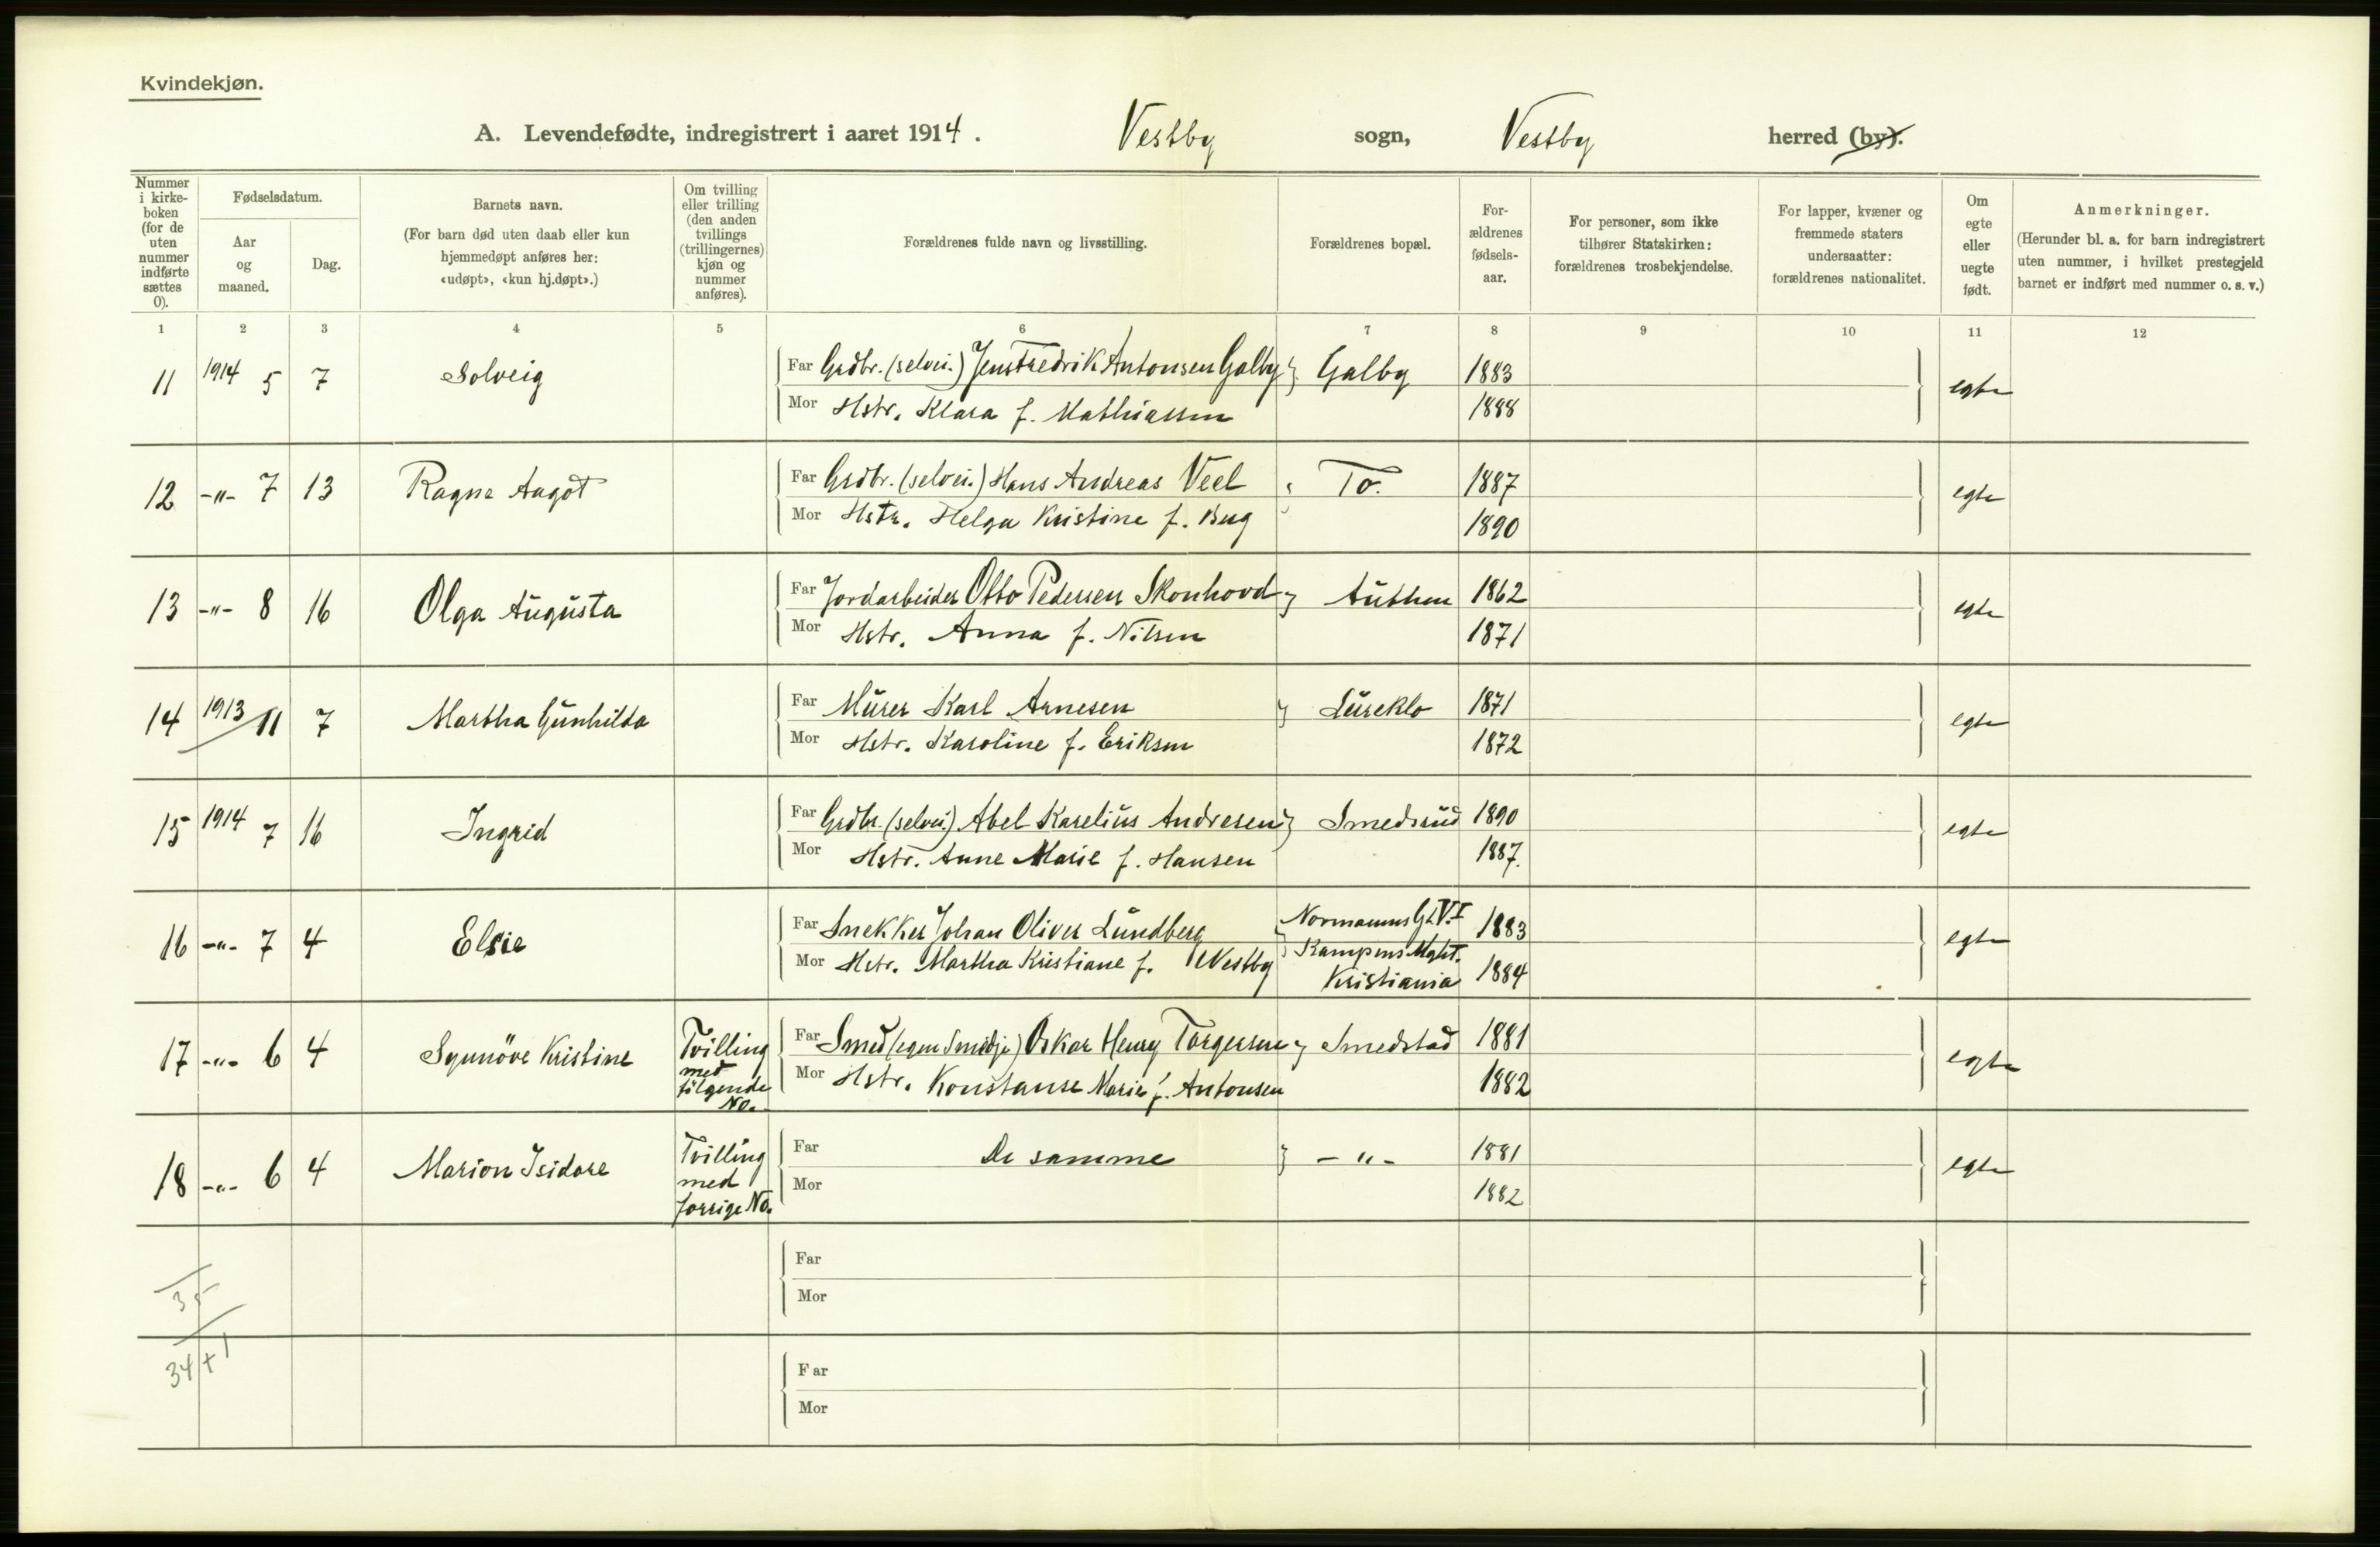 Kvindekjøn.
A. Levendefødte, indregistrert i aaret 1914. Vestby sogn, Vestby herred (by).
Nummer i kirke-boken (for de uten nummer indførte sættes 0).
Fødselsdatum.
Aar og maaned.
Dag.
Barnets navn.
(For barn død uten daab eller kun hjemmedøpt anføres her: «udøpt», «kun hj.døpt».)
Om tvilling eller trilling (den anden tvillings (trillingernes) kjøn og nummer anføres).
Forældrenes fulde navn og livsstilling.
Forældrenes bopæl.
For-ældrenes fødsels-aar.
For personer, som ikke tilhører Statskirken: forældrenes trosbekjendelse.
For lapper, kvæner og fremmede staters undersaatter: forældrenes nationalitet.
Om egte eller uegte født.
Anmerkninger.
(Herunder bl. a. for barn indregistrert uten nummer, i hvilket prestegjeld barnet er indført med nummer o. s. v.)
1 2 3 4 5 6 7 8 9 10 11 12
11 1914 5 7 Solveig Far Grdbr. (selvei.) Jens Fredrik Antonsen Galby Galby 1883 egte
Mor Hstr. Klara f. Mathiassen 1888
12 -"- 7 13 Ragna Aagot Far Grdbr. (selvei.) Hans Andreas Veel To. 1887 egte
Mor Hstr. Helga Kristine f. Bug 1890
13 -"- 8 16 Olga Augusta Far Jordarbeider Otto Pedersen Skonhovd Authen 1862 egte
Mor Hstr. Anna f. Nilsen 1871
14 1913 11 7 Martha Gunhilda Far Murer Karl Arnesen Lureklo 1871 egte
Mor Hstr. Karoline f. Eriksen 1872
15 1914 7 16 Ingrid Far Grdbr. (selvei) Abel Karelius Andresen Smedsrud 1890 egte
Mor Hstr. Anne Marie f. Hansen 1887.
16 -"- 7 4 Elsie Far Snekker Johan Oliver Lundberg Normanns Gt. V.I 1883 egte
Mor Hstr. Martha Kristiane f. Vestby Kampens Mght. Kristiania 1884
17 -"- 6 4 Synnöve Kristine Tvilling med følgende No. Far Smed (egen Smidje) Oskar Henry Torgersen Smedstad 1881 egte
Mor Hstr. Konstanse Marie f. Antonsen 1882
18 -"- 6 4 Marion Isidore Tvilling med forrige No. Far De samme -"- 1881 egte
Mor 1882
35
Far
Mor
34+1
Far
Mor